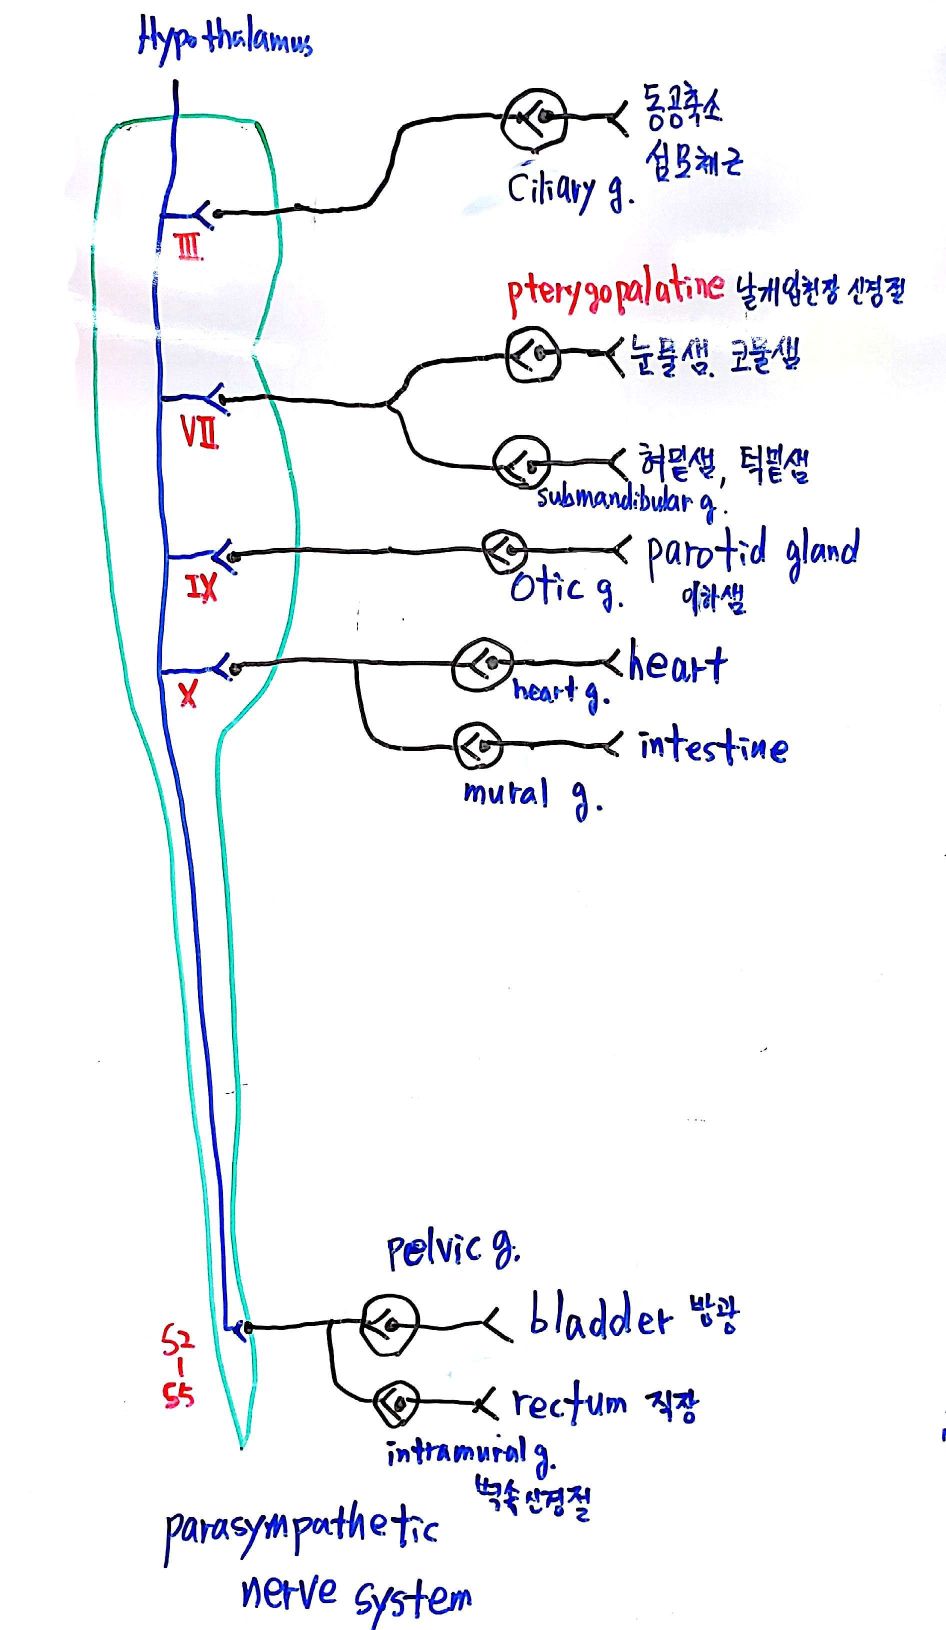 Hypothalamus
동공축소
섬모체근
Ciliary g.
III
pterygopalatine 날개입천장 신경절
눈물샘, 코물샘
VII
혀밑샘, 턱밑샘
submandibular g.
parotid gland
이하샘
IX
Otic g.
heart
X
heart g.
intestine
mural g.
pelvic g.
bladder 방광
S2
|
S5
rectum 직장
intramural g.
벽속신경절
parasympathetic
nerve system